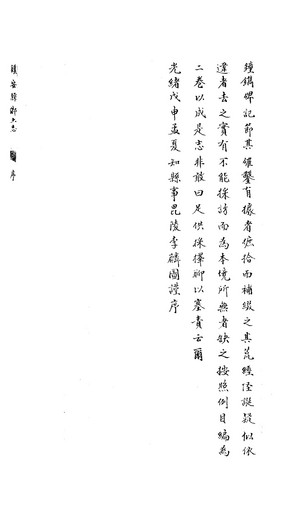 鐘鐫碑記節其確鑿有據者俻拾而補綴之其荒經侄誕疑似依
違者去之實有不能採訪而為本境所無者缺之按照例目編為
二卷以成是志非敢曰足供採擇聊以塞責云爾
光緒戊申孟夏知縣事毘陵李麟圖謹序
鎮安縣鄉土志
序